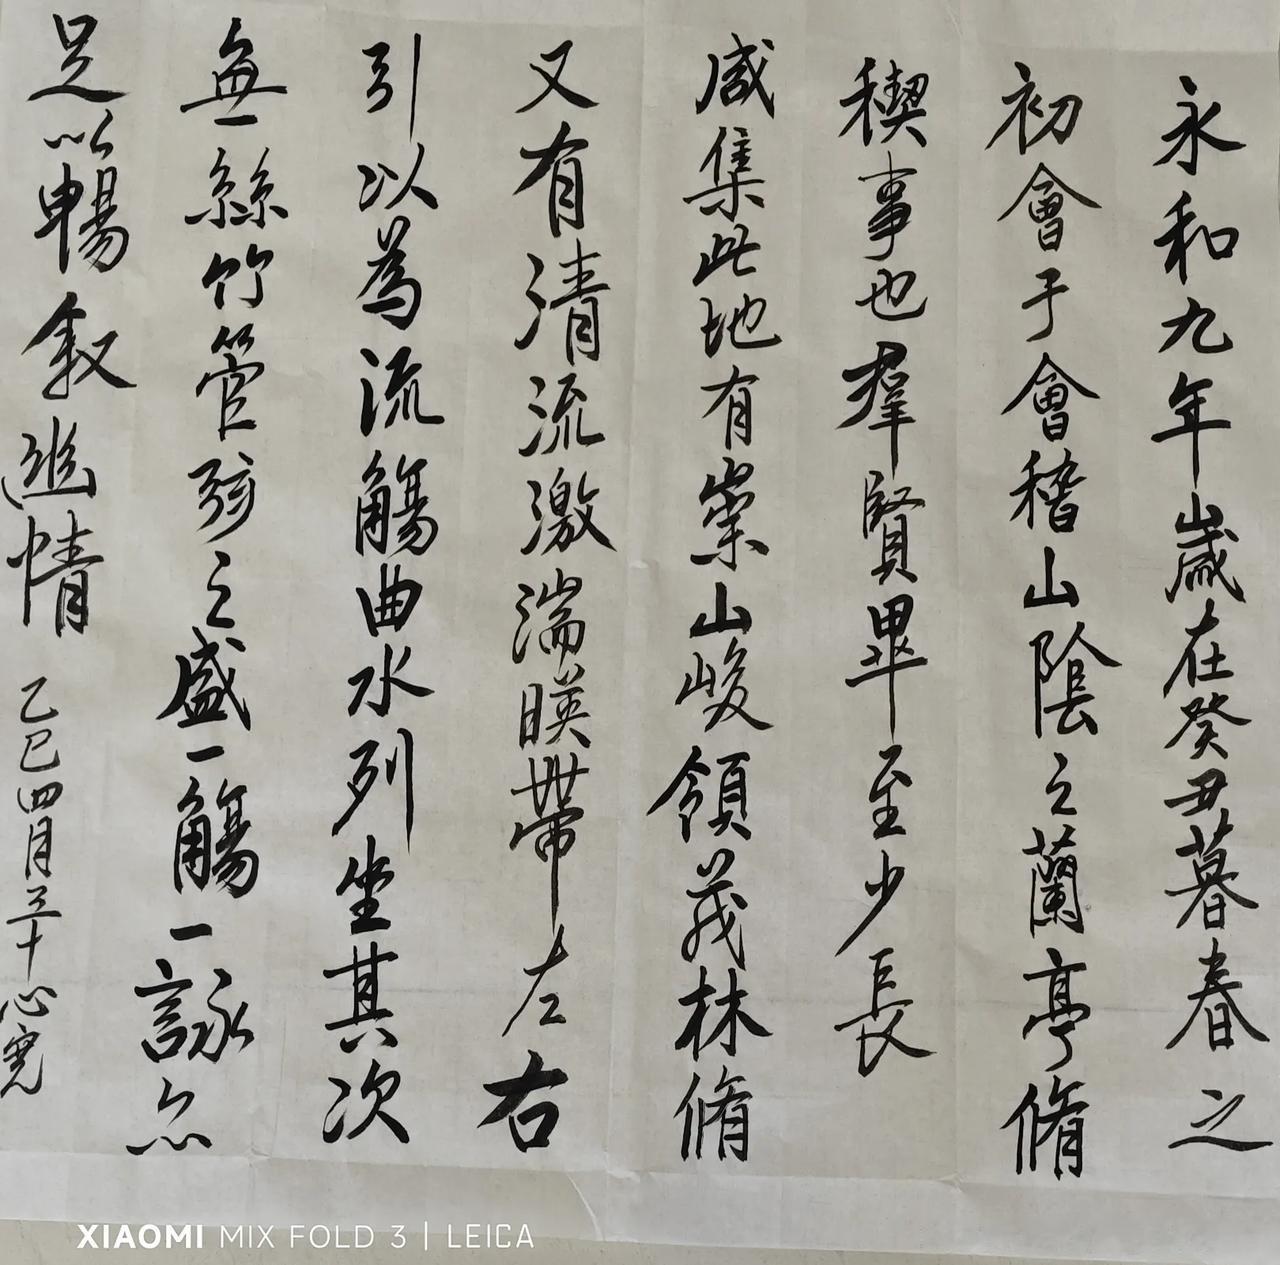 永和九年歲在癸丑暮春之
初會于會稽山陰之蘭亭脩
稧事也羣賢畢至少長
咸集此地有崇山峻領茂林脩
又有清流激湍暎帶左右
引以為流觴曲水列坐其次
無絲竹管弦之盛一觴一詠亦
足以暢敘幽情
乙巳四月三十心寬
XIAOMI MIX FOLD 3 | LEICA